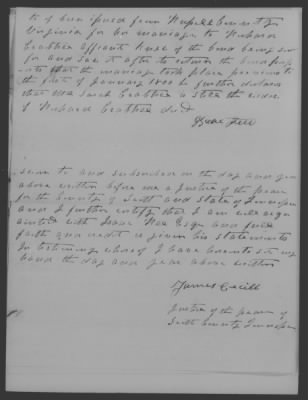 to of
Virginia for
Crabtree affiants knew of the bond being
for and saw it after its return the
that the marriage took place previous to
the first of January 1800 he further declares
that Mrs Sarah Crabtree is still the widow
of Richard Crabtree dec'd

sworn to and subscribed on the day and year
above written before me a Justice of the peace
for the County of Scott and State of Tennessee
and I further certify that I am well acqu
ainted with Isaac Esqr and full
faith and credit is given his statements
In testimony whereof I have hereunto set my
hand the day and year above written
James Cecill
Justice of the peace of
Scott County Tennessee